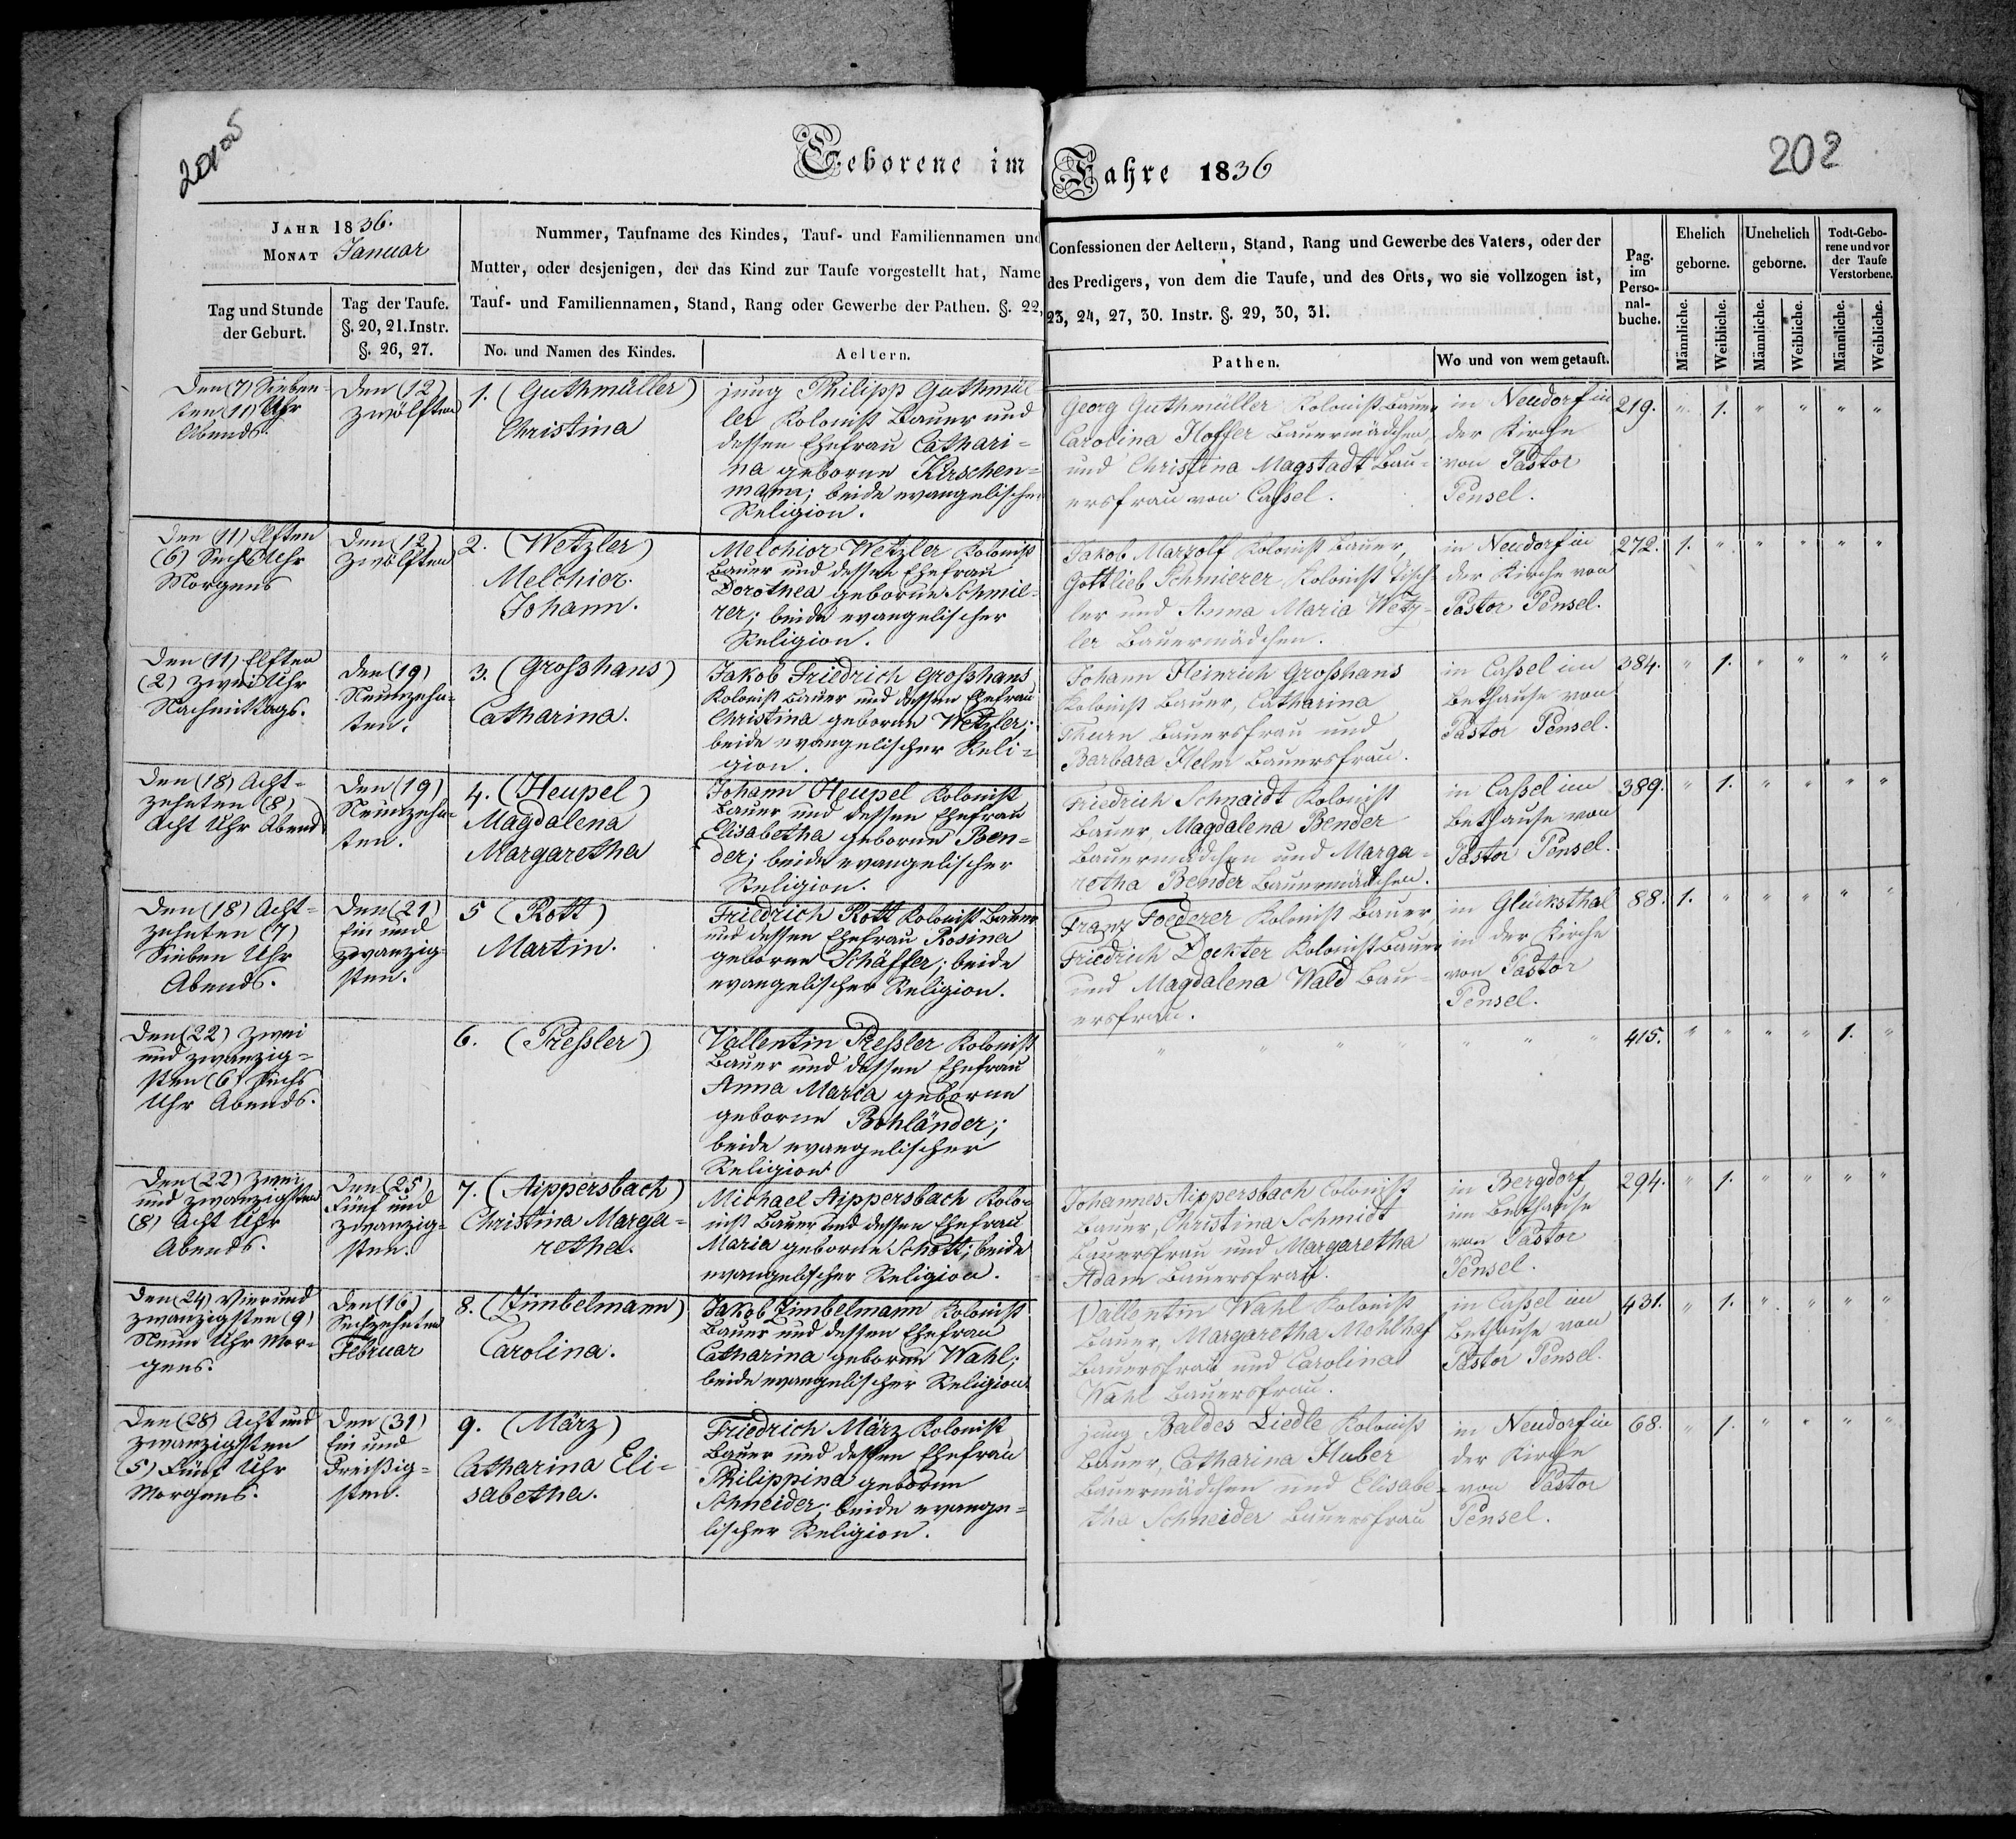 202
Geborene im Jahre 1836
JAHR 1836.
MONAT Januar
Tag und Stunde
der Geburt.
Tag der Taufe.
§. 20, 21. Instr.
§. 26, 27.
Nummer, Taufname des Kindes, Tauf- und Familiennamen und
Mutter, oder desjenigen, der das Kind zur Taufe vorgestellt hat, Name
Tauf- und Familiennamen, Stand, Rang oder Gewerbe der Pathen. §. 22,
No. und Namen des Kindes.
Aeltern.
Confessionen der Aeltern, Stand, Rang und Gewerbe des Vaters, oder der
des Predigers, von dem die Taufe, und des Orts, wo sie vollzogen ist,
23, 24, 27, 30. Instr. §. 29, 30, 31.
Pathen.
Wo und von wem getauft.
Pag.
im
Perso-
nal-
buche.
Ehelich
geborne.
Unehelich
geborne.
Todt-Gebo-
rene und vor
der Taufe
Verstorbene.
Männliche.
Weibliche.
Männliche.
Weibliche.
Männliche.
Weibliche.
Den (7) Sieben-
ten (11) Uhr
Abends.
Den (12)
Zwölften
1. (Guthmüller)
Christina
jung Philipp Guthmül
ler Kolonist Bauer und
dessen Ehefrau Cathari-
na geborne Kirschen-
mann; beide evangelischer
Religion.
Georg Guthmüller Kolonist Bauer
Carolina Hoffer Bauermädchen,
und Christina Magstadt Bau-
ersfrau von Caßel.
in Neudorf in
der Kirche
von Pastor
Pensel.
219. " 1. " " " "
Den (11) Elften
(6) Sechs Uhr
Morgens
Den (12)
Zwölften
2. (Wetzler)
Melchior
Johann.
Melchior Wetzler Kolonist
Bauer und dessen Ehefrau
Dorothea geborne Schmie-
rer; beide evangelischer
Religion.
Jakob Marzolf Kolonist Bauer,
Gottlieb Schmierer Kolonist Tisch-
ler und Anna Maria Wetz-
ler Bauermädchen.
in Neudorf in
der Kirche von
Pastor Pensel.
272. 1. " " " " "
Den (11) Elften
(2) Zwei Uhr
Nachmittags.
Den (19)
Neunzehn-
ten.
3. (Großhans)
Catharina.
Jakob Friedrich Großhans
Kolonist Bauer und dessen Ehefrau
Christina geborne Wetzler;
beide evangelischer Reli-
gion.
Johann Heinrich Großhans
Kolonist Bauer, Catharina
Thurn Bauersfrau und
Barbara Helm Bauersfrau.
in Caßel im
Bethause von
Pastor Pensel.
384. " 1. " " " "
Den (18) Acht-
zehnten (8)
Acht Uhr Abend
Den (19)
Neunzehn-
ten.
4. (Heupel)
Magdalena
Margaretha
Johann Heupel Kolonist
Bauer und dessen Ehefrau
Elisabetha geborne Ben-
der; beide evangelischer
Religion.
Friedrich Schnaidt Kolonist
Bauer, Magdalena Bender
Bauermädchen und Marga-
retha Bender Bauermädchen.
in Caßel im
Bethause von
Pastor Pensel.
389. " 1. " " " "
Den (18) Acht-
zehnten (7)
Sieben Uhr
Abends.
Den (21)
Ein und
zwanzig-
sten.
5 (Rott)
Martin.
Friedrich Rott Kolonist Bauer
und dessen Ehefrau Rosina
geborne Schäffer; beide
evangelischer Religion.
Franz Foederer Kolonist Bauer
Friedrich Dockter Kolonist Bauer
und Magdalena Wald Bau-
ersfrau.
in Glücksthal
in der Kirche
von Pastor
Pensel.
88. 1. " " " " "
Den (22) Zwei
und zwanzig-
sten (6) sechs
Uhr Abends.
6. (Preßler)
Vallentin Preßler Kolonist
Bauer und dessen Ehefrau
Anna Maria geborne
geborne Bohländer;
beide evangelischer
Religion
" " " " " " "
415. " " " " 1. "
Den (22) Zwei
und zwanzigsten
(8) Acht Uhr
Abends.
Den (25)
Fünf und
zwanzig-
sten.
7. (Aippersbach)
Christina Marga-
retha.
Michael Aippersbach Kolo-
nist Bauer und dessen Ehefrau
Maria geborne Schott; beide
evangelischer Religion.
Johannes Aippersbach Colonist
Bauer, Christina Schmidt
Bauersfrau und Margaretha
Adam Bauersfrau.
in Bergdorf
im Bethause
von Pastor
Pensel.
294. " 1. " " " "
Den (24) Vierund
zwanzigsten (9)
Neun Uhr Mor-
gens.
Den (16)
Sechzehnten
Februar
8. (Zimbelmann)
Carolina.
Jakob Zimbelmann Kolonist
Bauer und dessen Ehefrau
Catharina geborne Wahl;
beide evangelischer Religion
Vallentin Wahl Kolonist
Bauer, Margaretha Mehlhaf
Bauersfrau und Carolina
Wahl Bauersfrau.
in Caßel im
Bethause von
Pastor Pensel.
431. " 1. " " " "
Den (28) Acht und
zwanzigsten
(5) Fünf Uhr
Morgens.
Den (31)
Ein und
Dreißig-
sten.
9. (März)
Catharina Eli-
sabetha.
Friedrich März Kolonist
Bauer und dessen Ehefrau
Philippina geborne
Schneider; beide evange-
lischer Religion.
jung Baldes Liedle Kolonist
Bauer, Catharina Huber
Bauermädchen und Elisabe-
tha Schneider Bauersfrau
in Neudorf in
der Kirche
von Pastor
Pensel.
68. " 1. " " " "